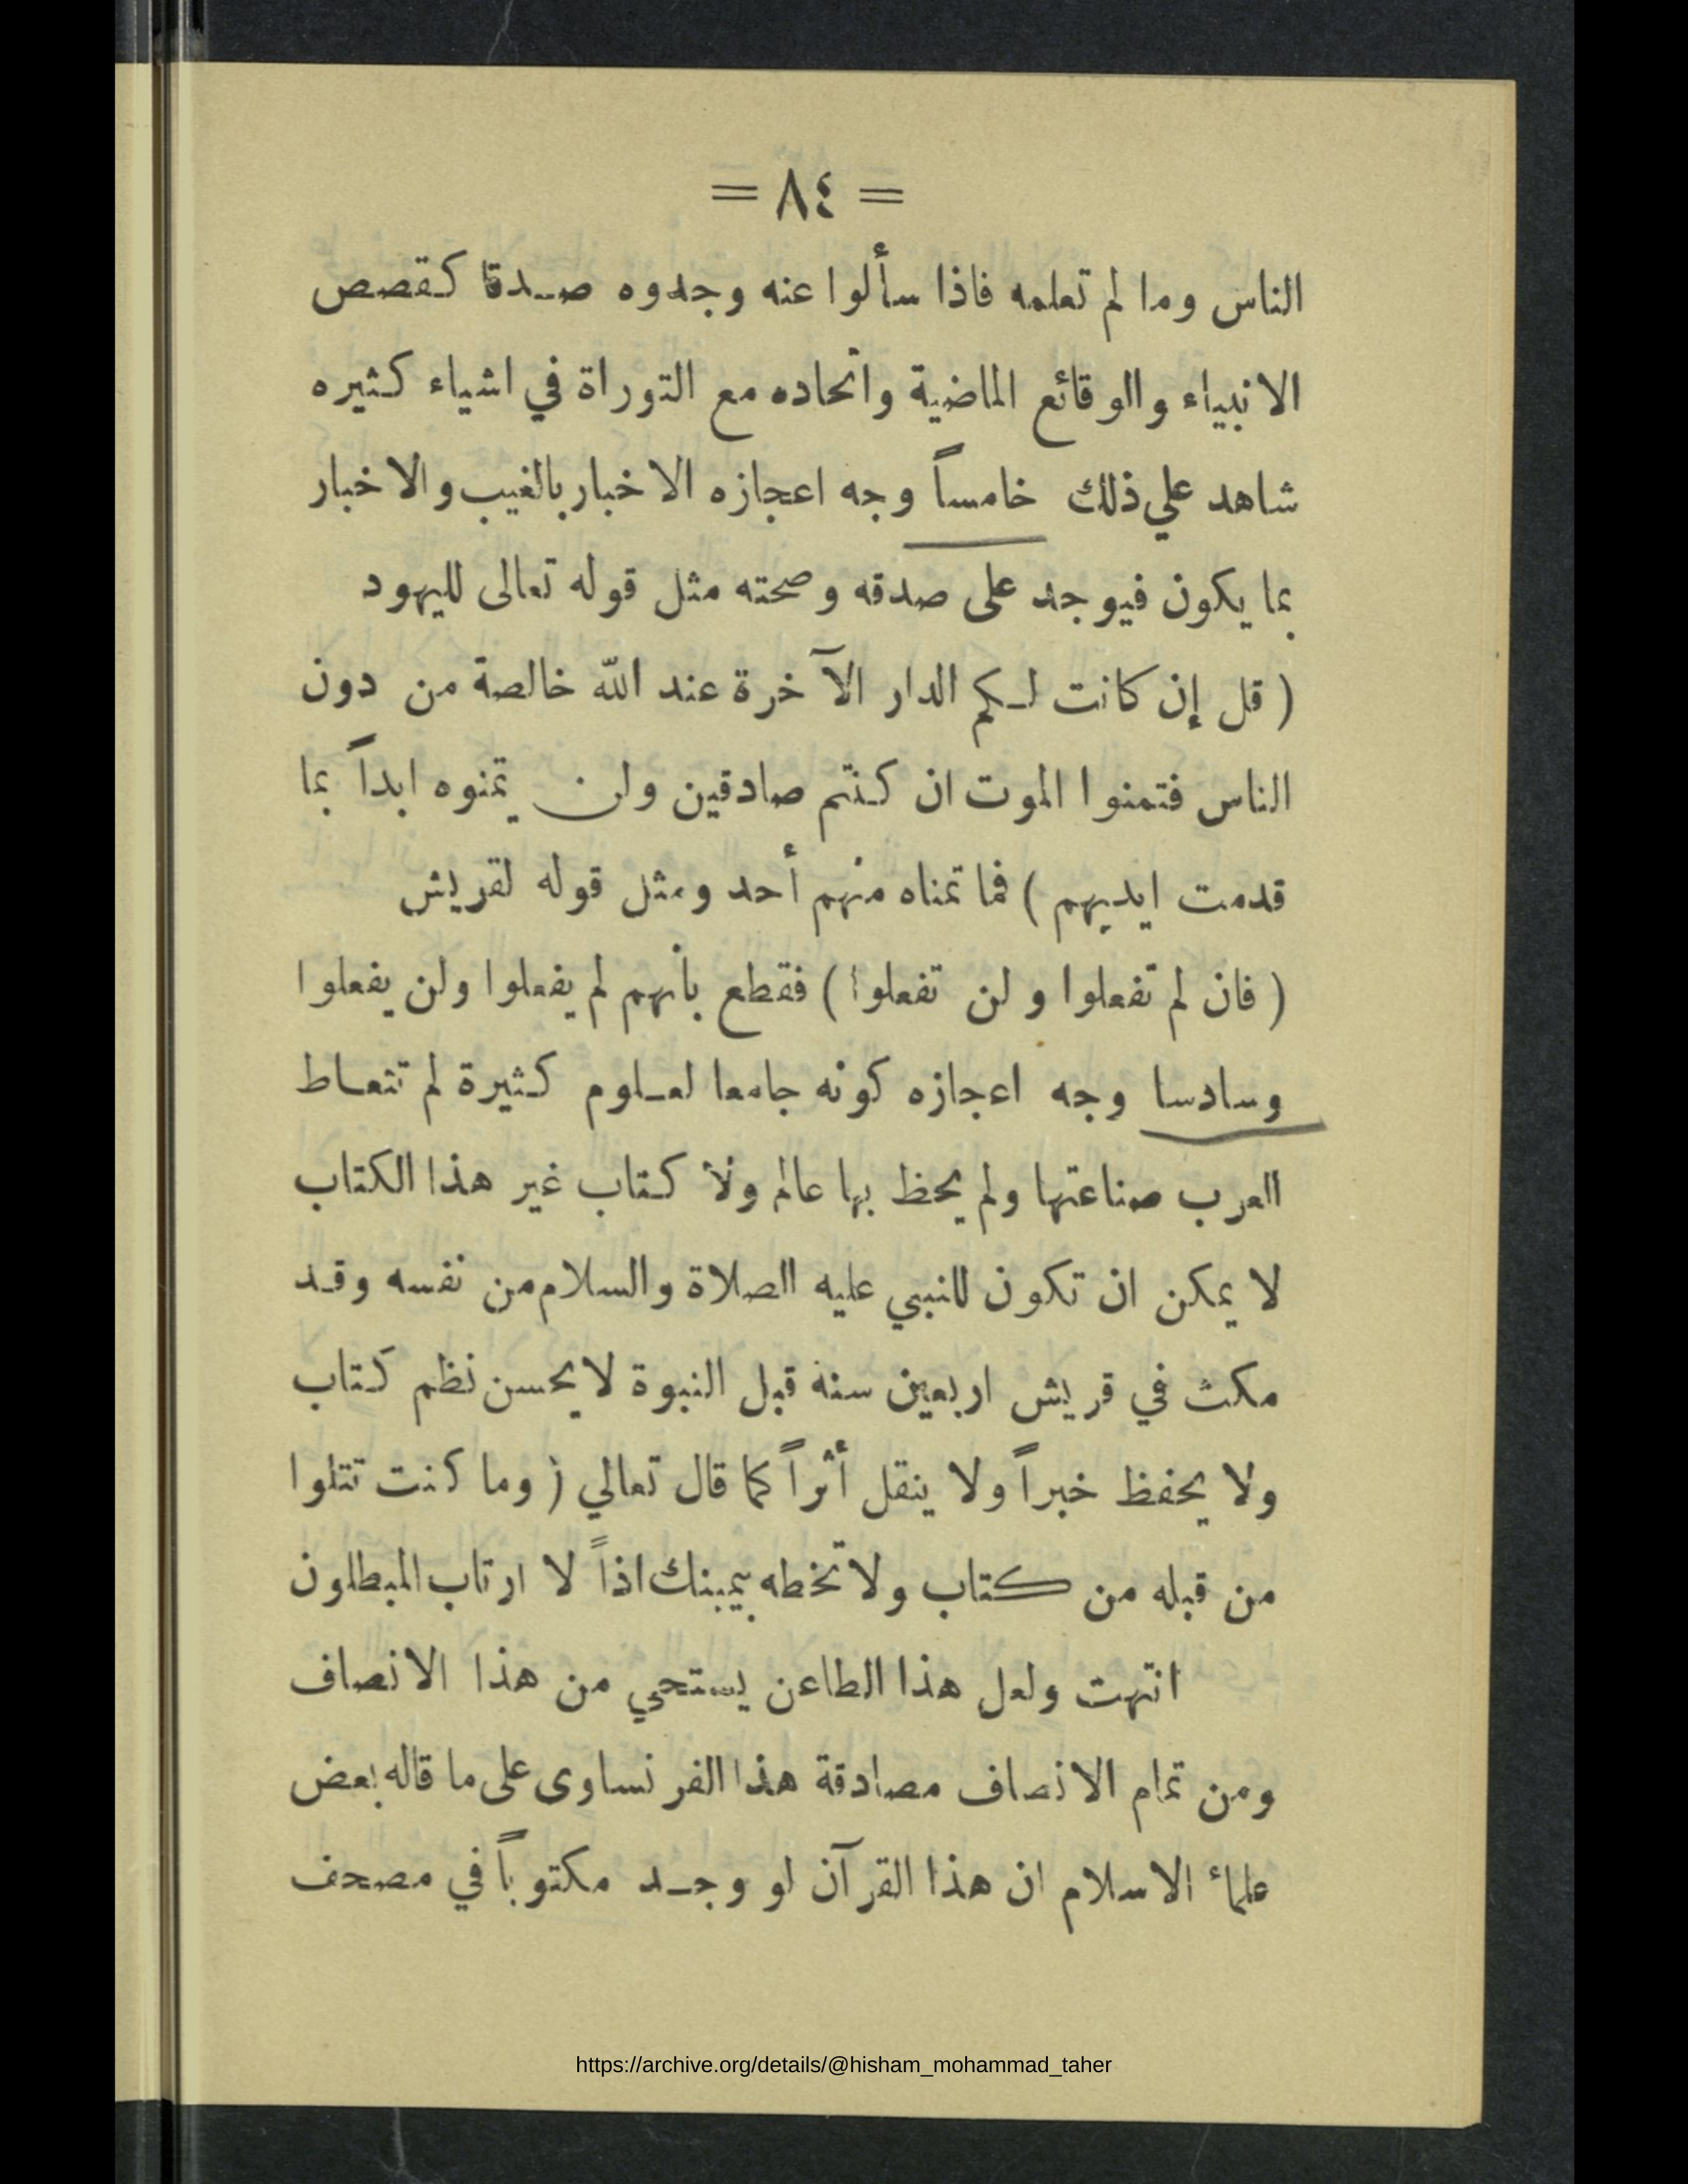 = ٨٤ =
الناس وما لم تعلمه فاذا سألوا عنه وجدوه صدقا كقصص
الانبياء والوقائع الماضية واتحاده مع التوراة في اشياء كثيره
شاهد علي ذلك خامساً وجه اعجازه الاخبار بالغيب والاخبار
بما يكون فيوجد على صدقه وصحته مثل قوله تعالى لليهود
( قل إن كانت لكم الدار الآخرة عند الله خالصة من دون
الناس فتمنوا الموت ان كنتم صادقين ولن يتمنوه ابداً بما
قدمت ايديهم ) فما تمناه منهم أحد ومثل قوله لقريش
( فان لم تفعلوا ولن تفعلوا ) فقطع بأنهم لم يفعلوا ولن يفعلوا
وسادسا وجه اعجازه كونه جامعا لعلوم كثيرة لم تتعاط
العرب صناعتها ولم يحظ بها عالم ولا كتاب غير هذا الكتاب
لا يمكن ان تكون للنبي عليه الصلاة والسلام من نفسه وقد
مكث في قريش اربعين سنة قبل النبوة لا يحسن نظم كتاب
ولا يحفظ خبراً ولا ينقل أثراً كما قال تعالي ( وما كنت تتلوا
من قبله من كتاب ولا تخطه بيمينك اذاً لا ارتاب المبطلون
انتهت ولعل هذا الطاعن يستحي من هذا الانصاف
ومن تمام الانصاف مصادقة هذا الفرنساوى على ما قاله بعض
علمائ الاسلام ان هذا القرآن لو وجد مكتوباً في مصحف
https://archive.org/details/@hisham_mohammad_taher